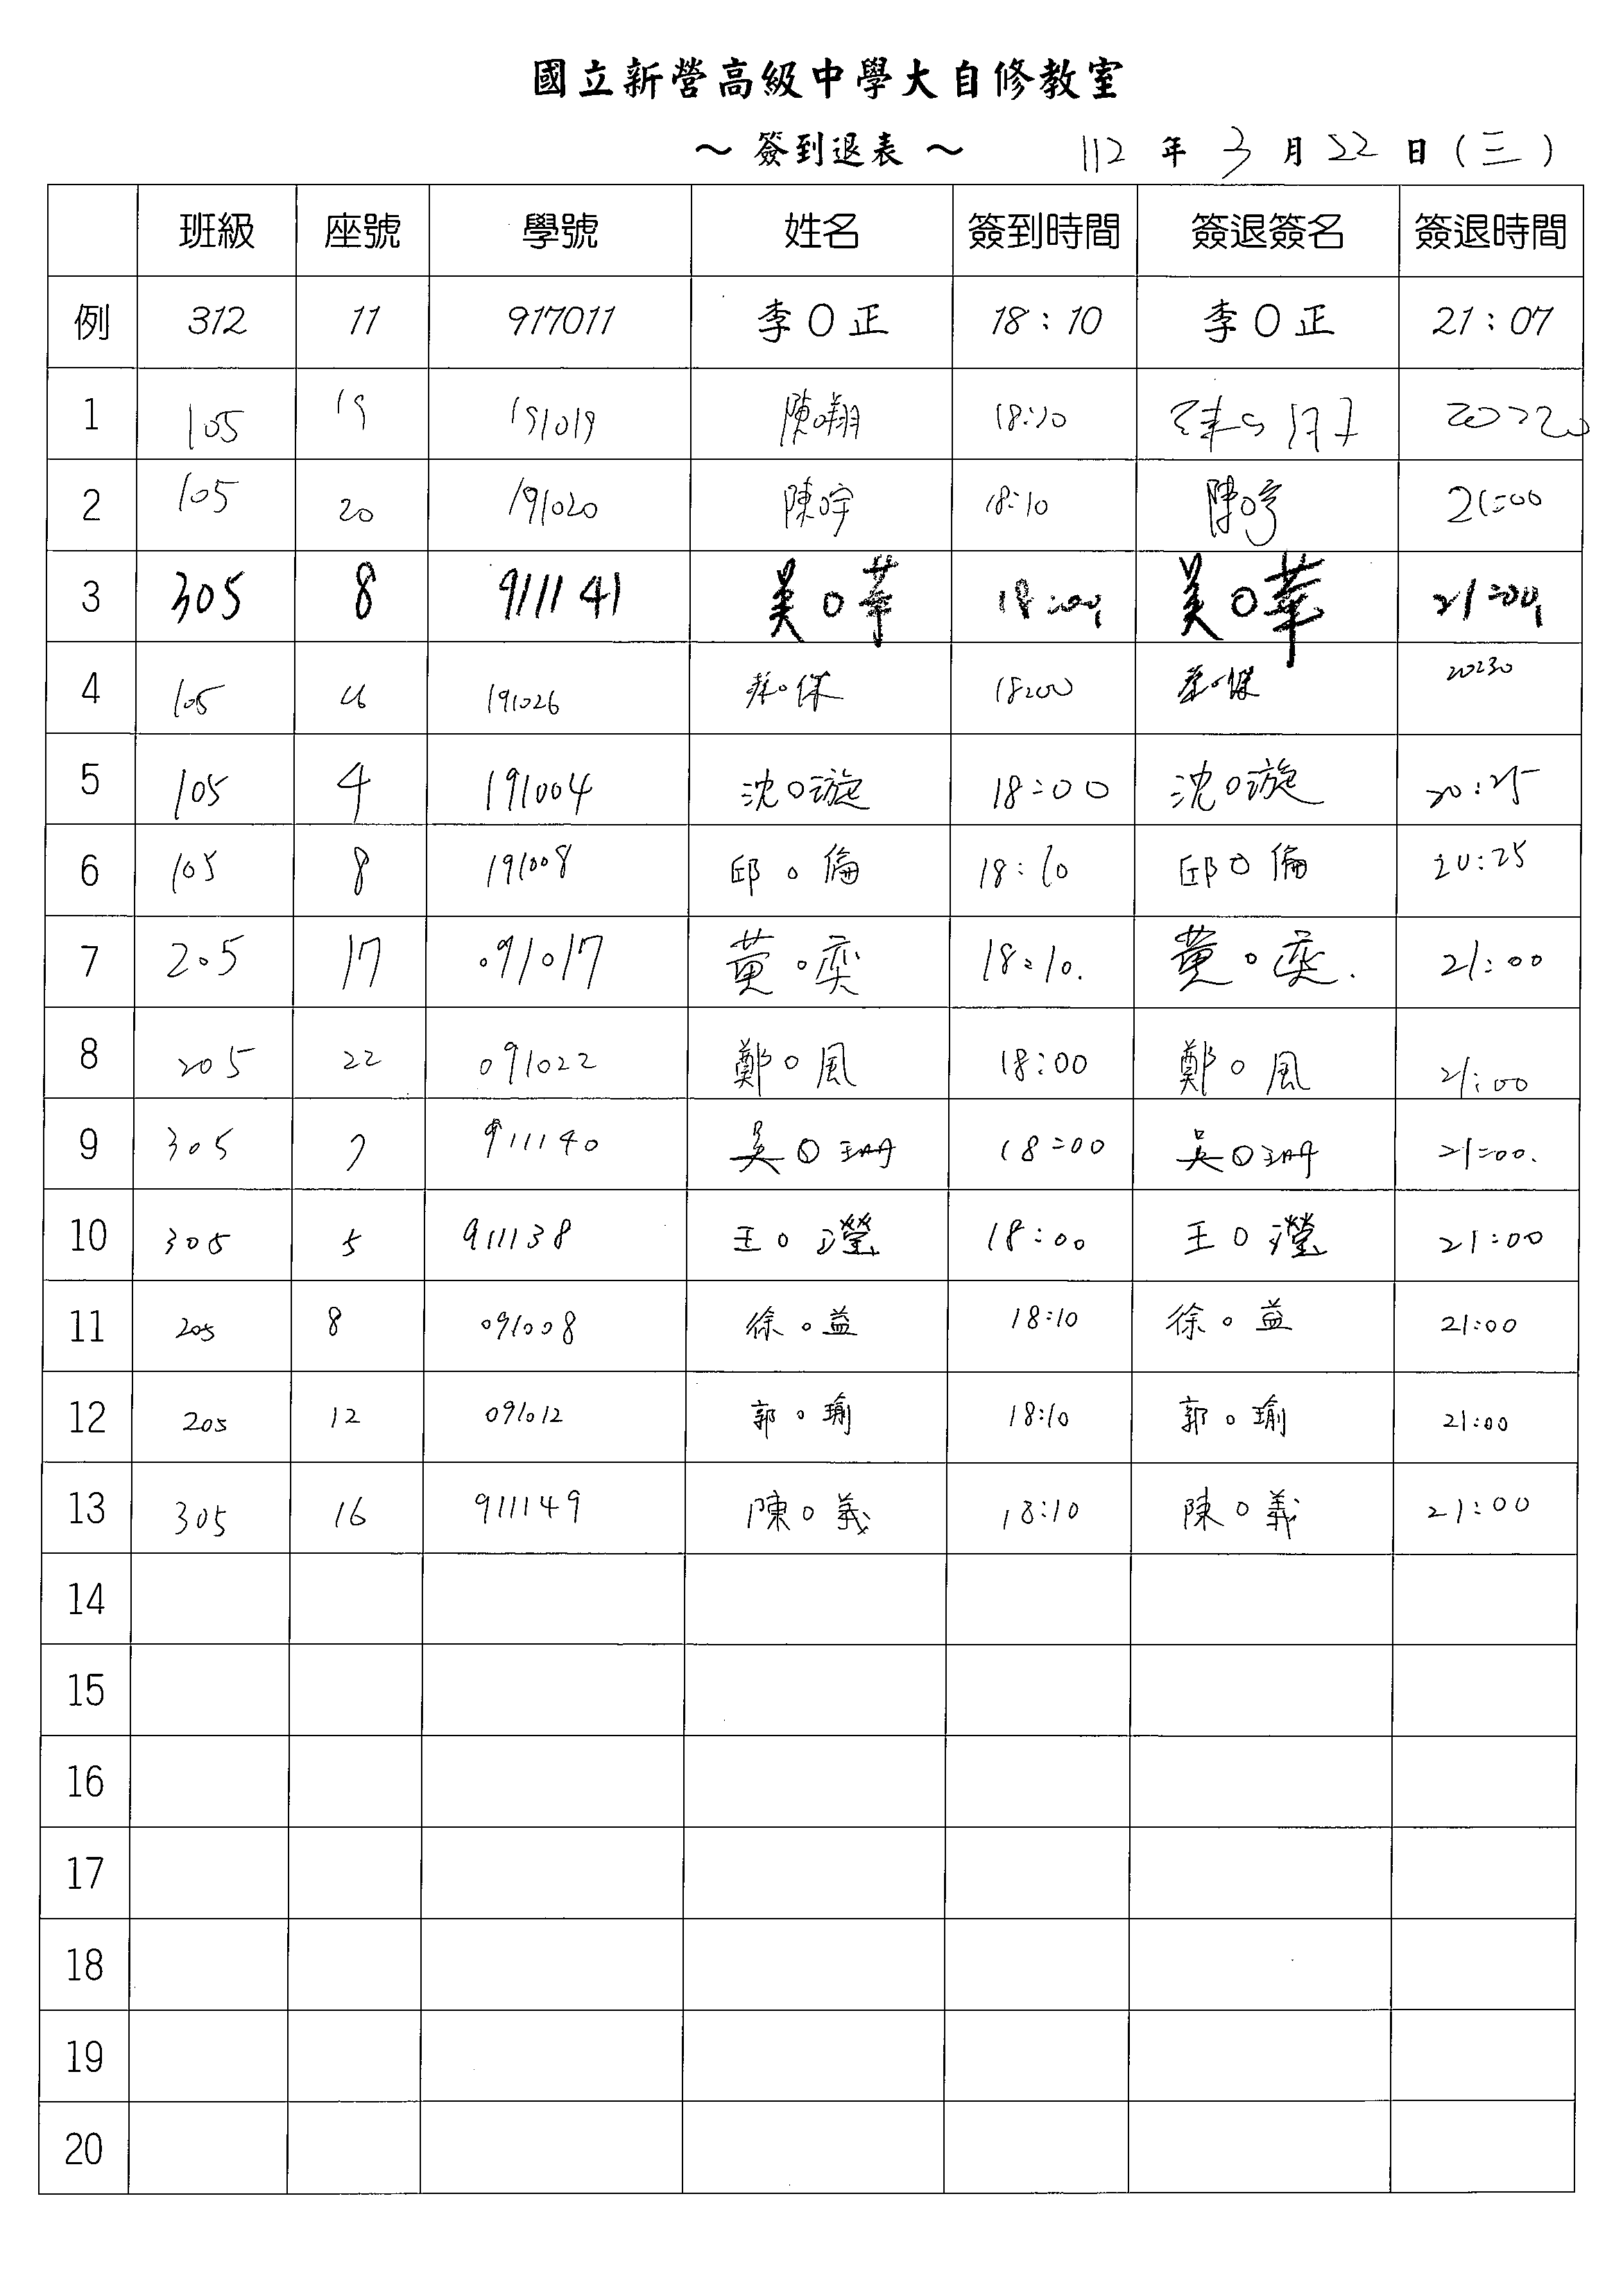 國立新營高級中學大自修教室
～簽到退表～ 112 年 3 月 22 日(三)
班級 座號 學號 姓名 簽到時間 簽退簽名 簽退時間
例 312 11 917011 李O正 18:10 李O正 21:07
1 105 19 191019 陳O翔 18:10 20:20
2 105 20 191020 陳O宇 18:10 陳O宇 21:00
3 305 8 911141 吳O華 18:00 吳O華 21:00
4 105 191026 蔡O保 18:00 蔡O保 20:30
5 105 4 191004 沈O漩 18:00 沈O漩 20:25
6 105 8 191008 邱O倫 18:10 邱O倫 20:25
7 205 17 091017 黃O奕 18:10. 黃O奕. 21:00
8 205 22 091022 鄭O風 18:00 鄭O風 21:00
9 305 7 911140 吳O珊 18:00 吳O珊 21:00.
10 305 5 911138 王O瀅 18:00 王O瀅 21:00
11 205 8 091008 徐O益 18:10 徐O益 21:00
12 205 12 091012 郭O瑜 18:10 郭O瑜 21:00
13 305 16 911149 陳O義 18:10 陳O義 21:00
14
15
16
17
18
19
20